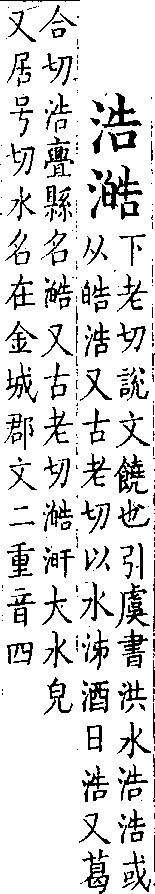 浩澔下老切說文饒也引虞書洪水浩浩或
从皓浩又古老切以水沸酒曰浩又葛
合切浩亹縣名澔又古老切澔汗大水皃
又居号切水名在金城郡文二重音四